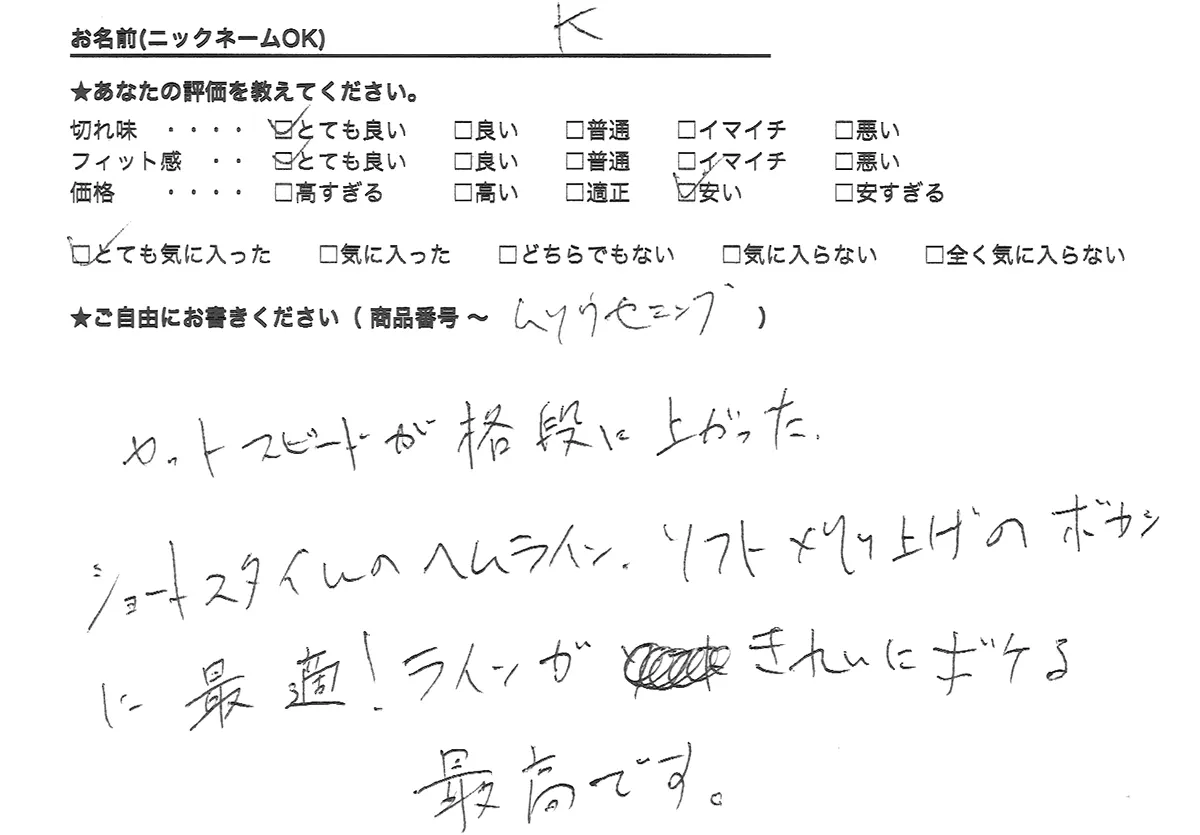 お名前(ニックネームOK) K
★あなたの評価を教えてください。
切れ味 ・・・・ ☑とても良い □良い □普通 □イマイチ □悪い
フィット感 ・・ ☑とても良い □良い □普通 □イマイチ □悪い
価格 ・・・・ □高すぎる □高い □適正 ☑安い □安すぎる
☑とても気に入った □気に入った □どちらでもない □気に入らない □全く気に入らない
★ご自由にお書きください ( 商品番号 〜 ムリウセニング )
カットスピードが格段に上がった.
ショートスタイルのヘムライン. ソフトメリリ上げのボカシ
に最適!ラインがきれいにボケる
最高です。